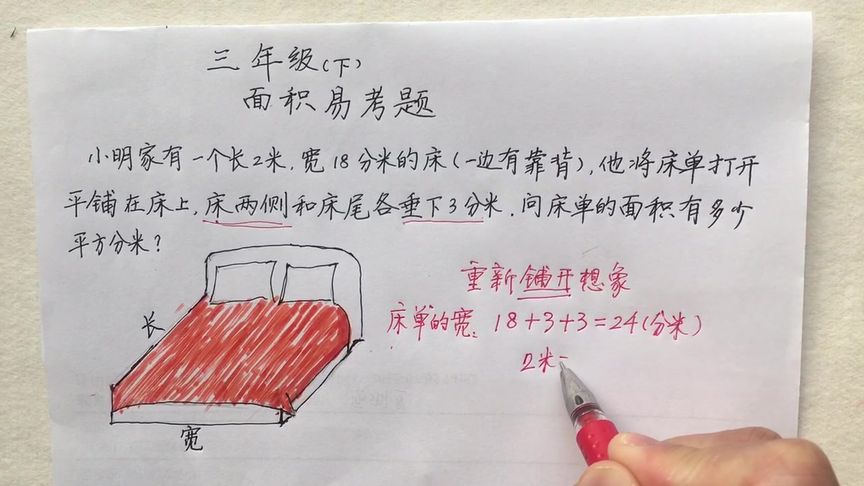 三年级(下)
面积易考题
小明家有一个长2米,宽18分米的床(一边有靠背),他将床单打开
平铺在床上,床两侧和床尾各垂下3分米,问床单的面积有多少
平方分米?
重新铺开想象
长
床单的宽: 18+3+3=24(分米)
2米=
宽